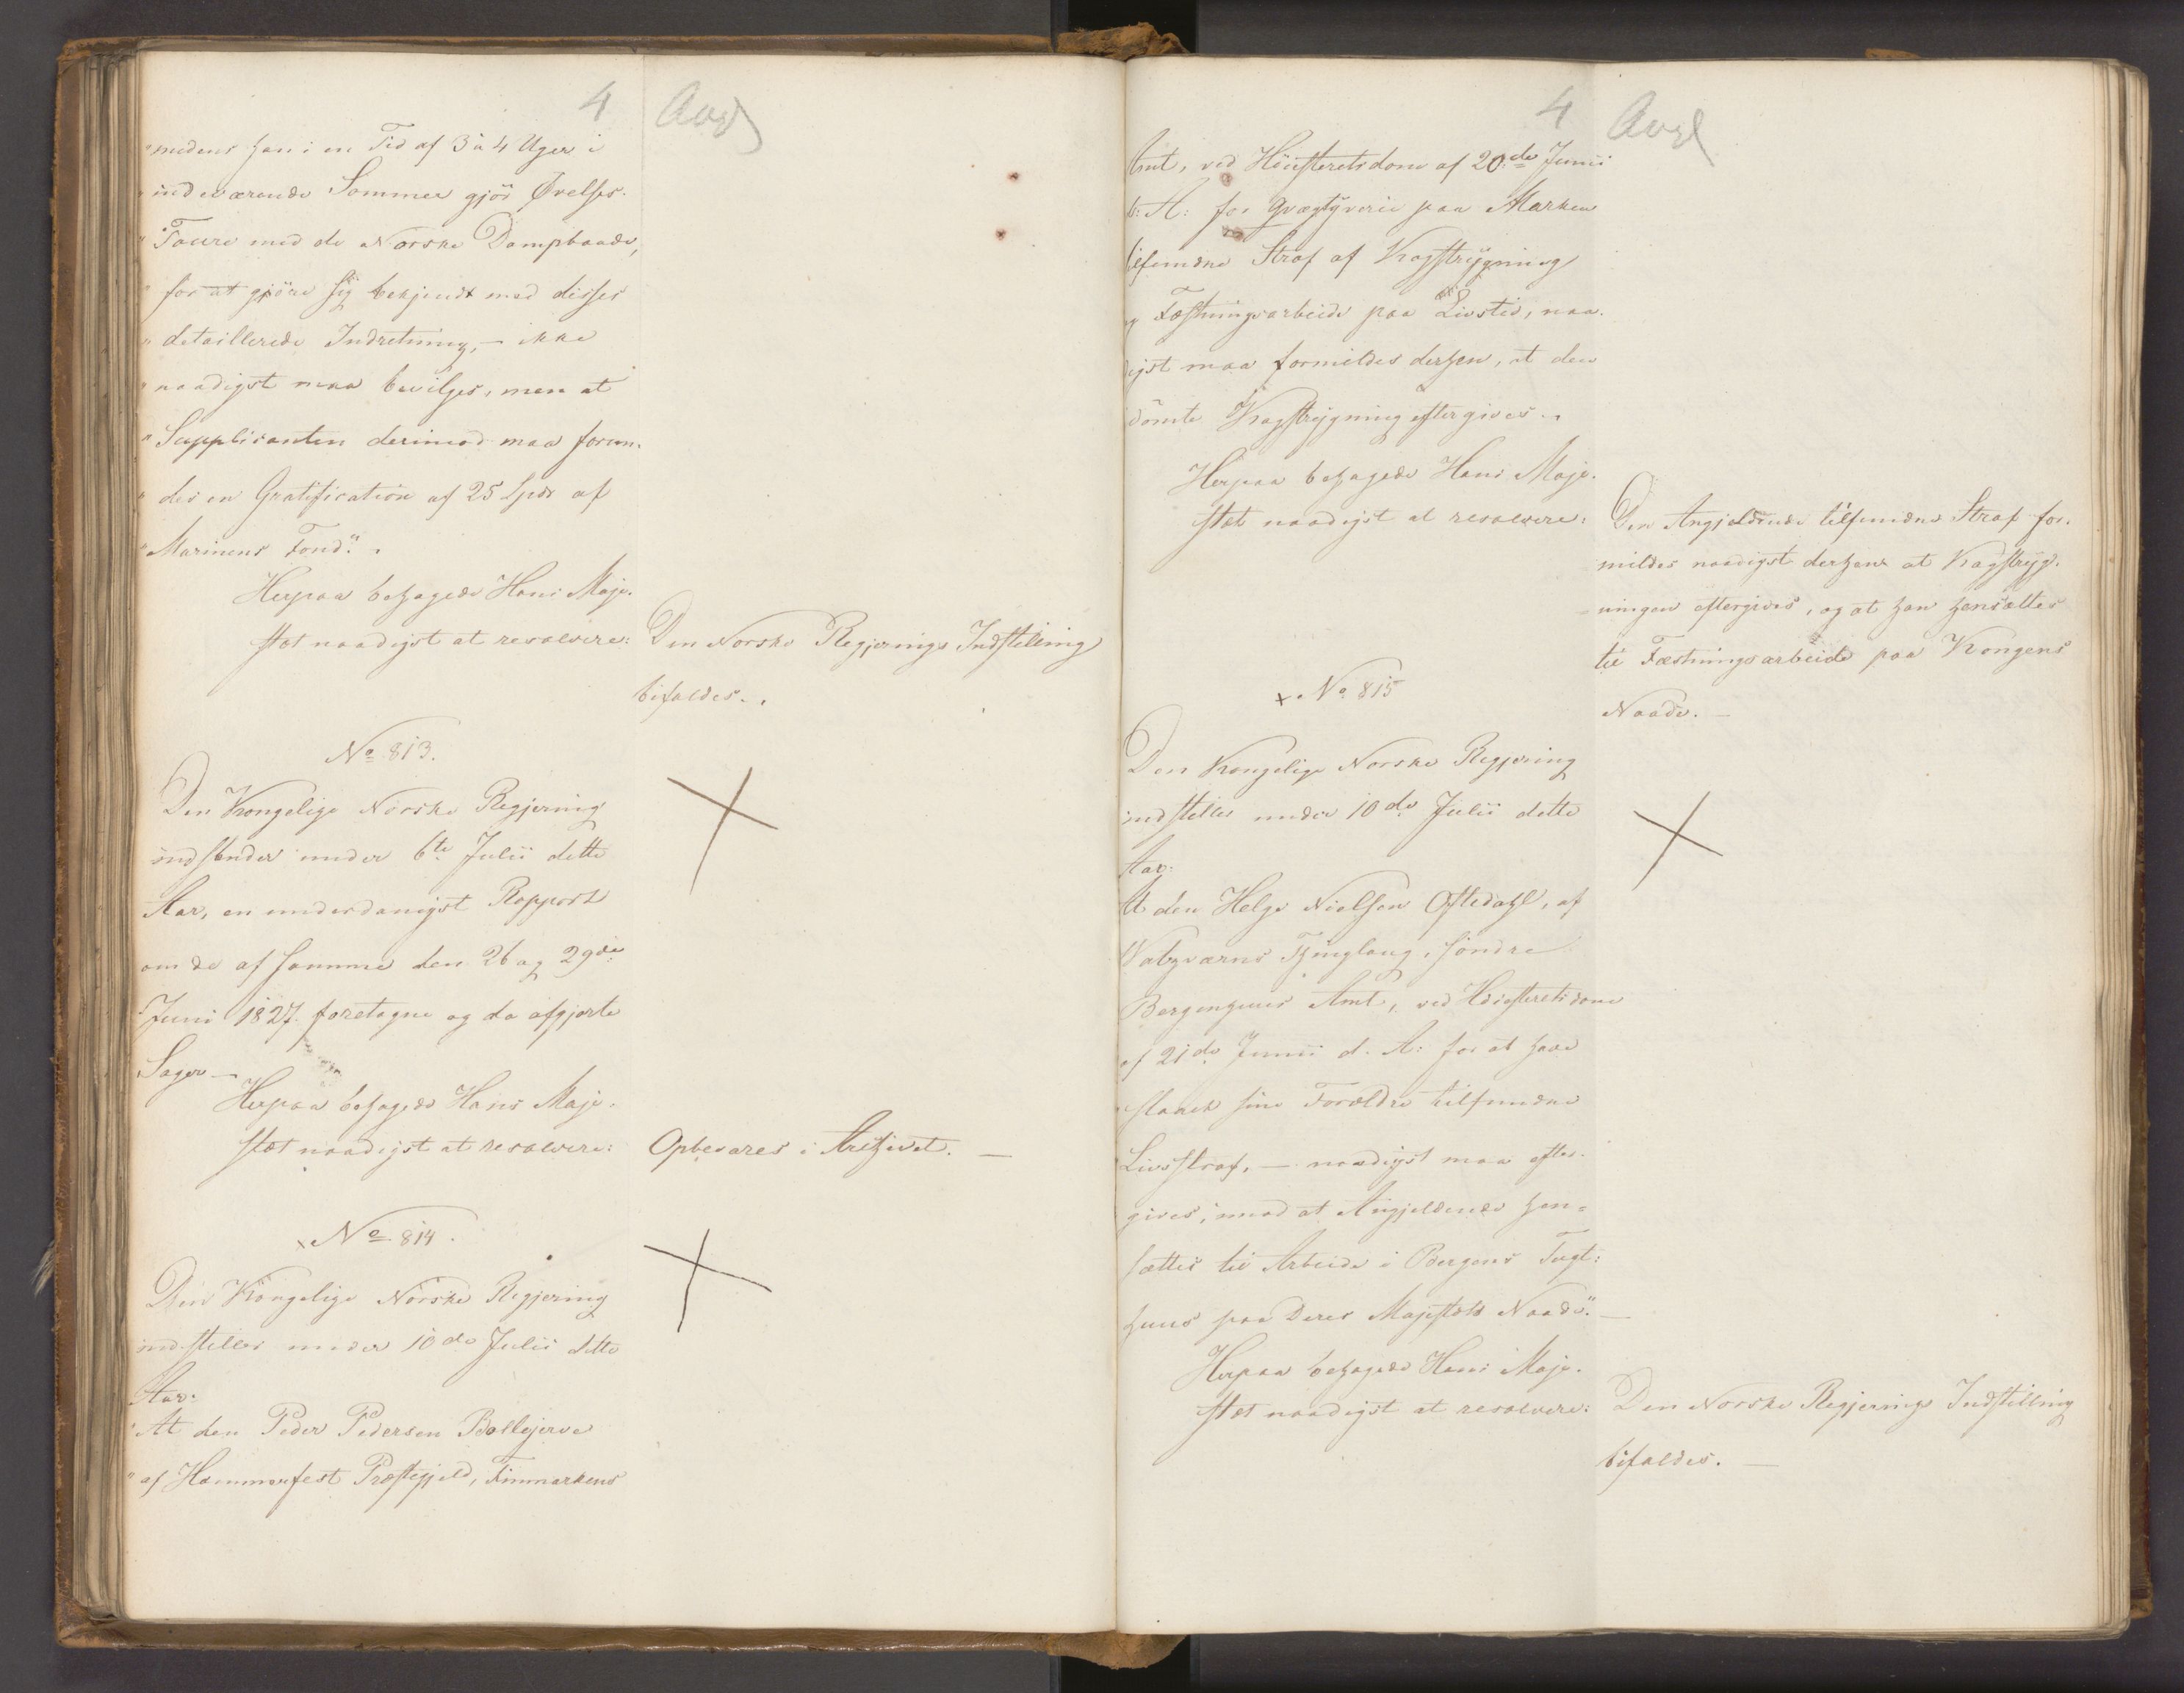 4 Aug
"medens han i en Tid af 3 à 4 Uger i
"indeværende Sommer gjør Øvelses-
"Toure med de Norske Dampbaade,
"for at gjöre sig bekjendt med disses
"detaillerede Indretning, — ikke
"naadigst maa bevilges, men at
"Supplicanten derimod maa forun-
"des en Gratification af 25 Spdr af
"Marinens Fond".
Herpaa behagede Hans Maje-
stæt naadigst at resolvere: Den Norske Regjerings Indstilling
bifaldes.
No 813.
Den Kongelige Norske Regjering
indsender under 6te Julii dette
Aar, en underdanigst Rapport
om de af samme den 26 og 29de
Juni 1827. foretagne og da afgjorte
Sager —
Herpaa behagede Hans Maje-
stæt naadigst at resolvere: Opbevares i Archivet. —
x No 814.
Den Kongelige Norske Regjering
indstiller under 10de Julii dette
Aar:
"At den Peder Pedersen Bollejerve
"af Hammerfest Præstegjeld, Finmarkens
4 Aug
Amt, ved Höiesteretsdom af 20de Junii
d: A: for Qvægtyverie paa Marken
tilfundne Straf af Kagstrygning
og Fæstningsarbeide paa Livstid, naa-
digst maa formildes derhen, at den
dömte Kagstrygning eftergives.
Herpaa behagede Hans Maje-
stæt naadigst at resolvere: Den Angjeldende tilfundne Straf for-
mildes naadigst derhen at Kagstryg-
ningen eftergives, og at han hensættes
til Fæstningsarbeide paa Kongens
Naade. —
x No 815
Den Kongelige Norske Regjering
indstiller under 10de Julii dette
Aar:
At den Helge Nielsen Oftedahl, af
Thinglaug, söndre
Bergenhuus Amt, ved Höiesteretsdom
af 21de Junii d. A: for at have
slaaet sine Forældre tilfundne
Livsstraf, — naadigst maa efter-
gives, imod at Angjeldende hen-
sættes til Arbeide i Bergens Tugt:
huus paa Deres Majestæts Naade". —
Herpaa behagede Hans Maje-
stæt naadigst at resolvere: Den Norske Regjerings Indstilling
bifaldes. —